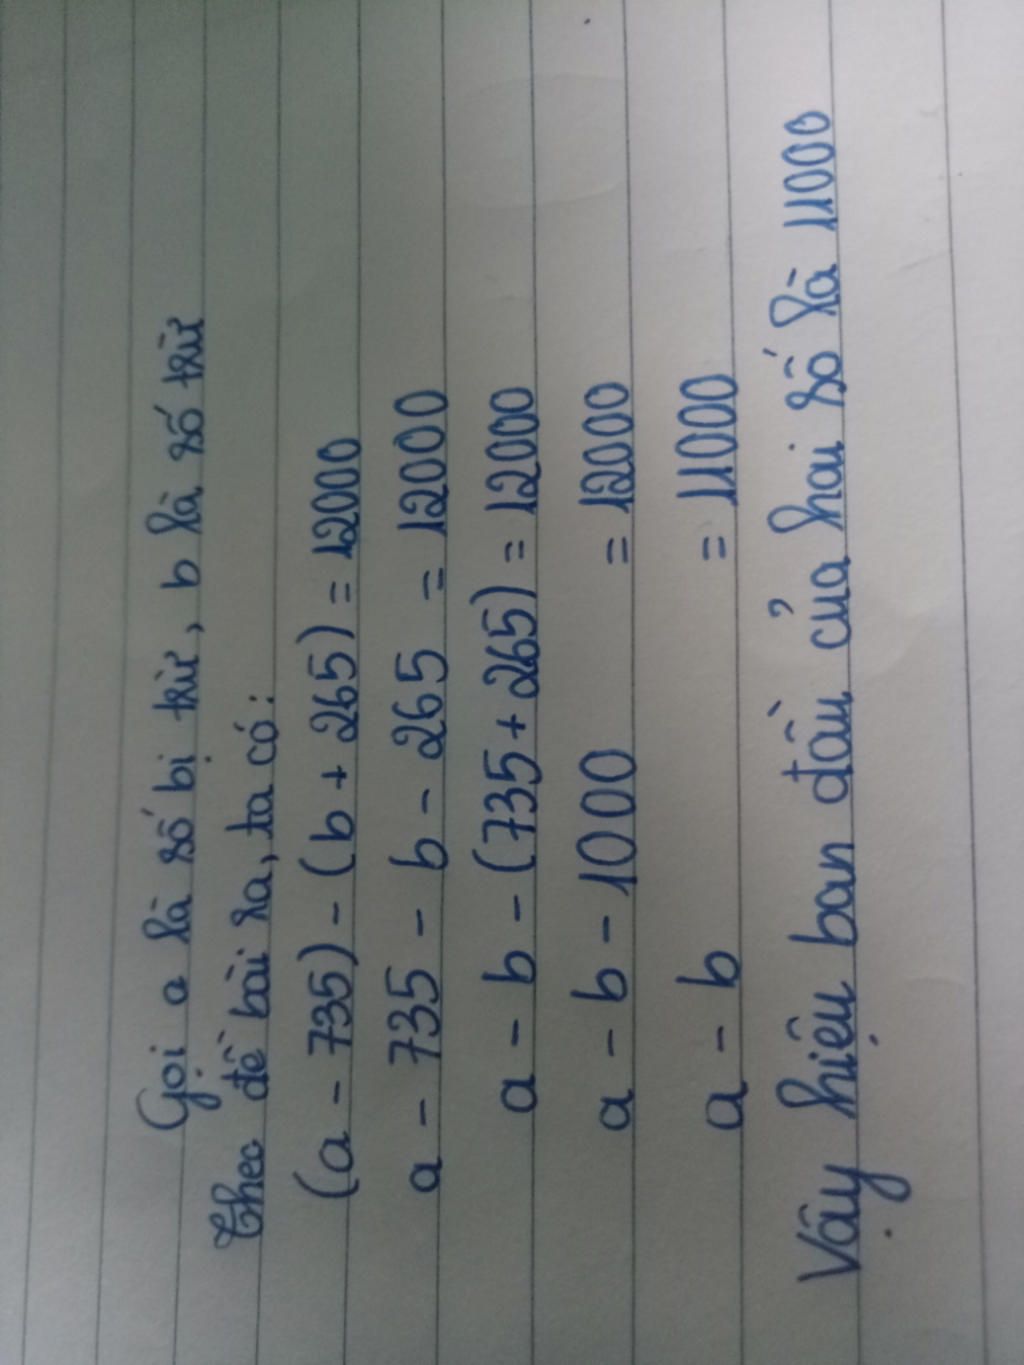 Gọi a là số bị trừ, b là số trừ
Theo đề bài ra, ta có:
(a - 735) - (b + 265) = 12000
a - 735 - b - 265 = 12000
a - b - (735 + 265) = 12000
a - b - 1000 = 12000
a - b = 11000
Vậy hiệu ban đầu của hai số là 11000